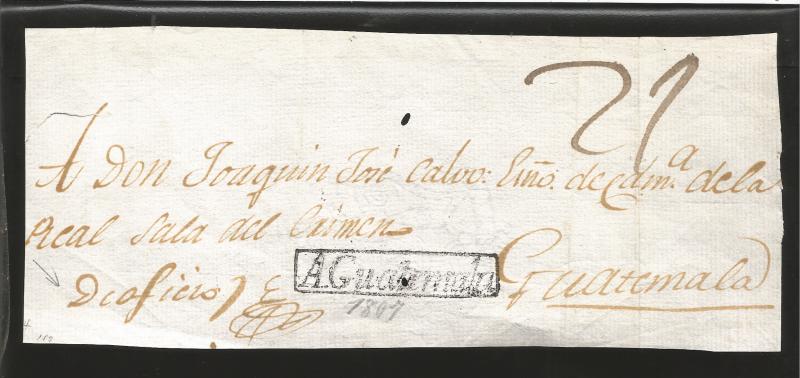 21
A Don Joaquin José Calvo: Essno. de Cámª. de la
Real Sala del Crimen
De oficio
A. Guatemala
Guatemala